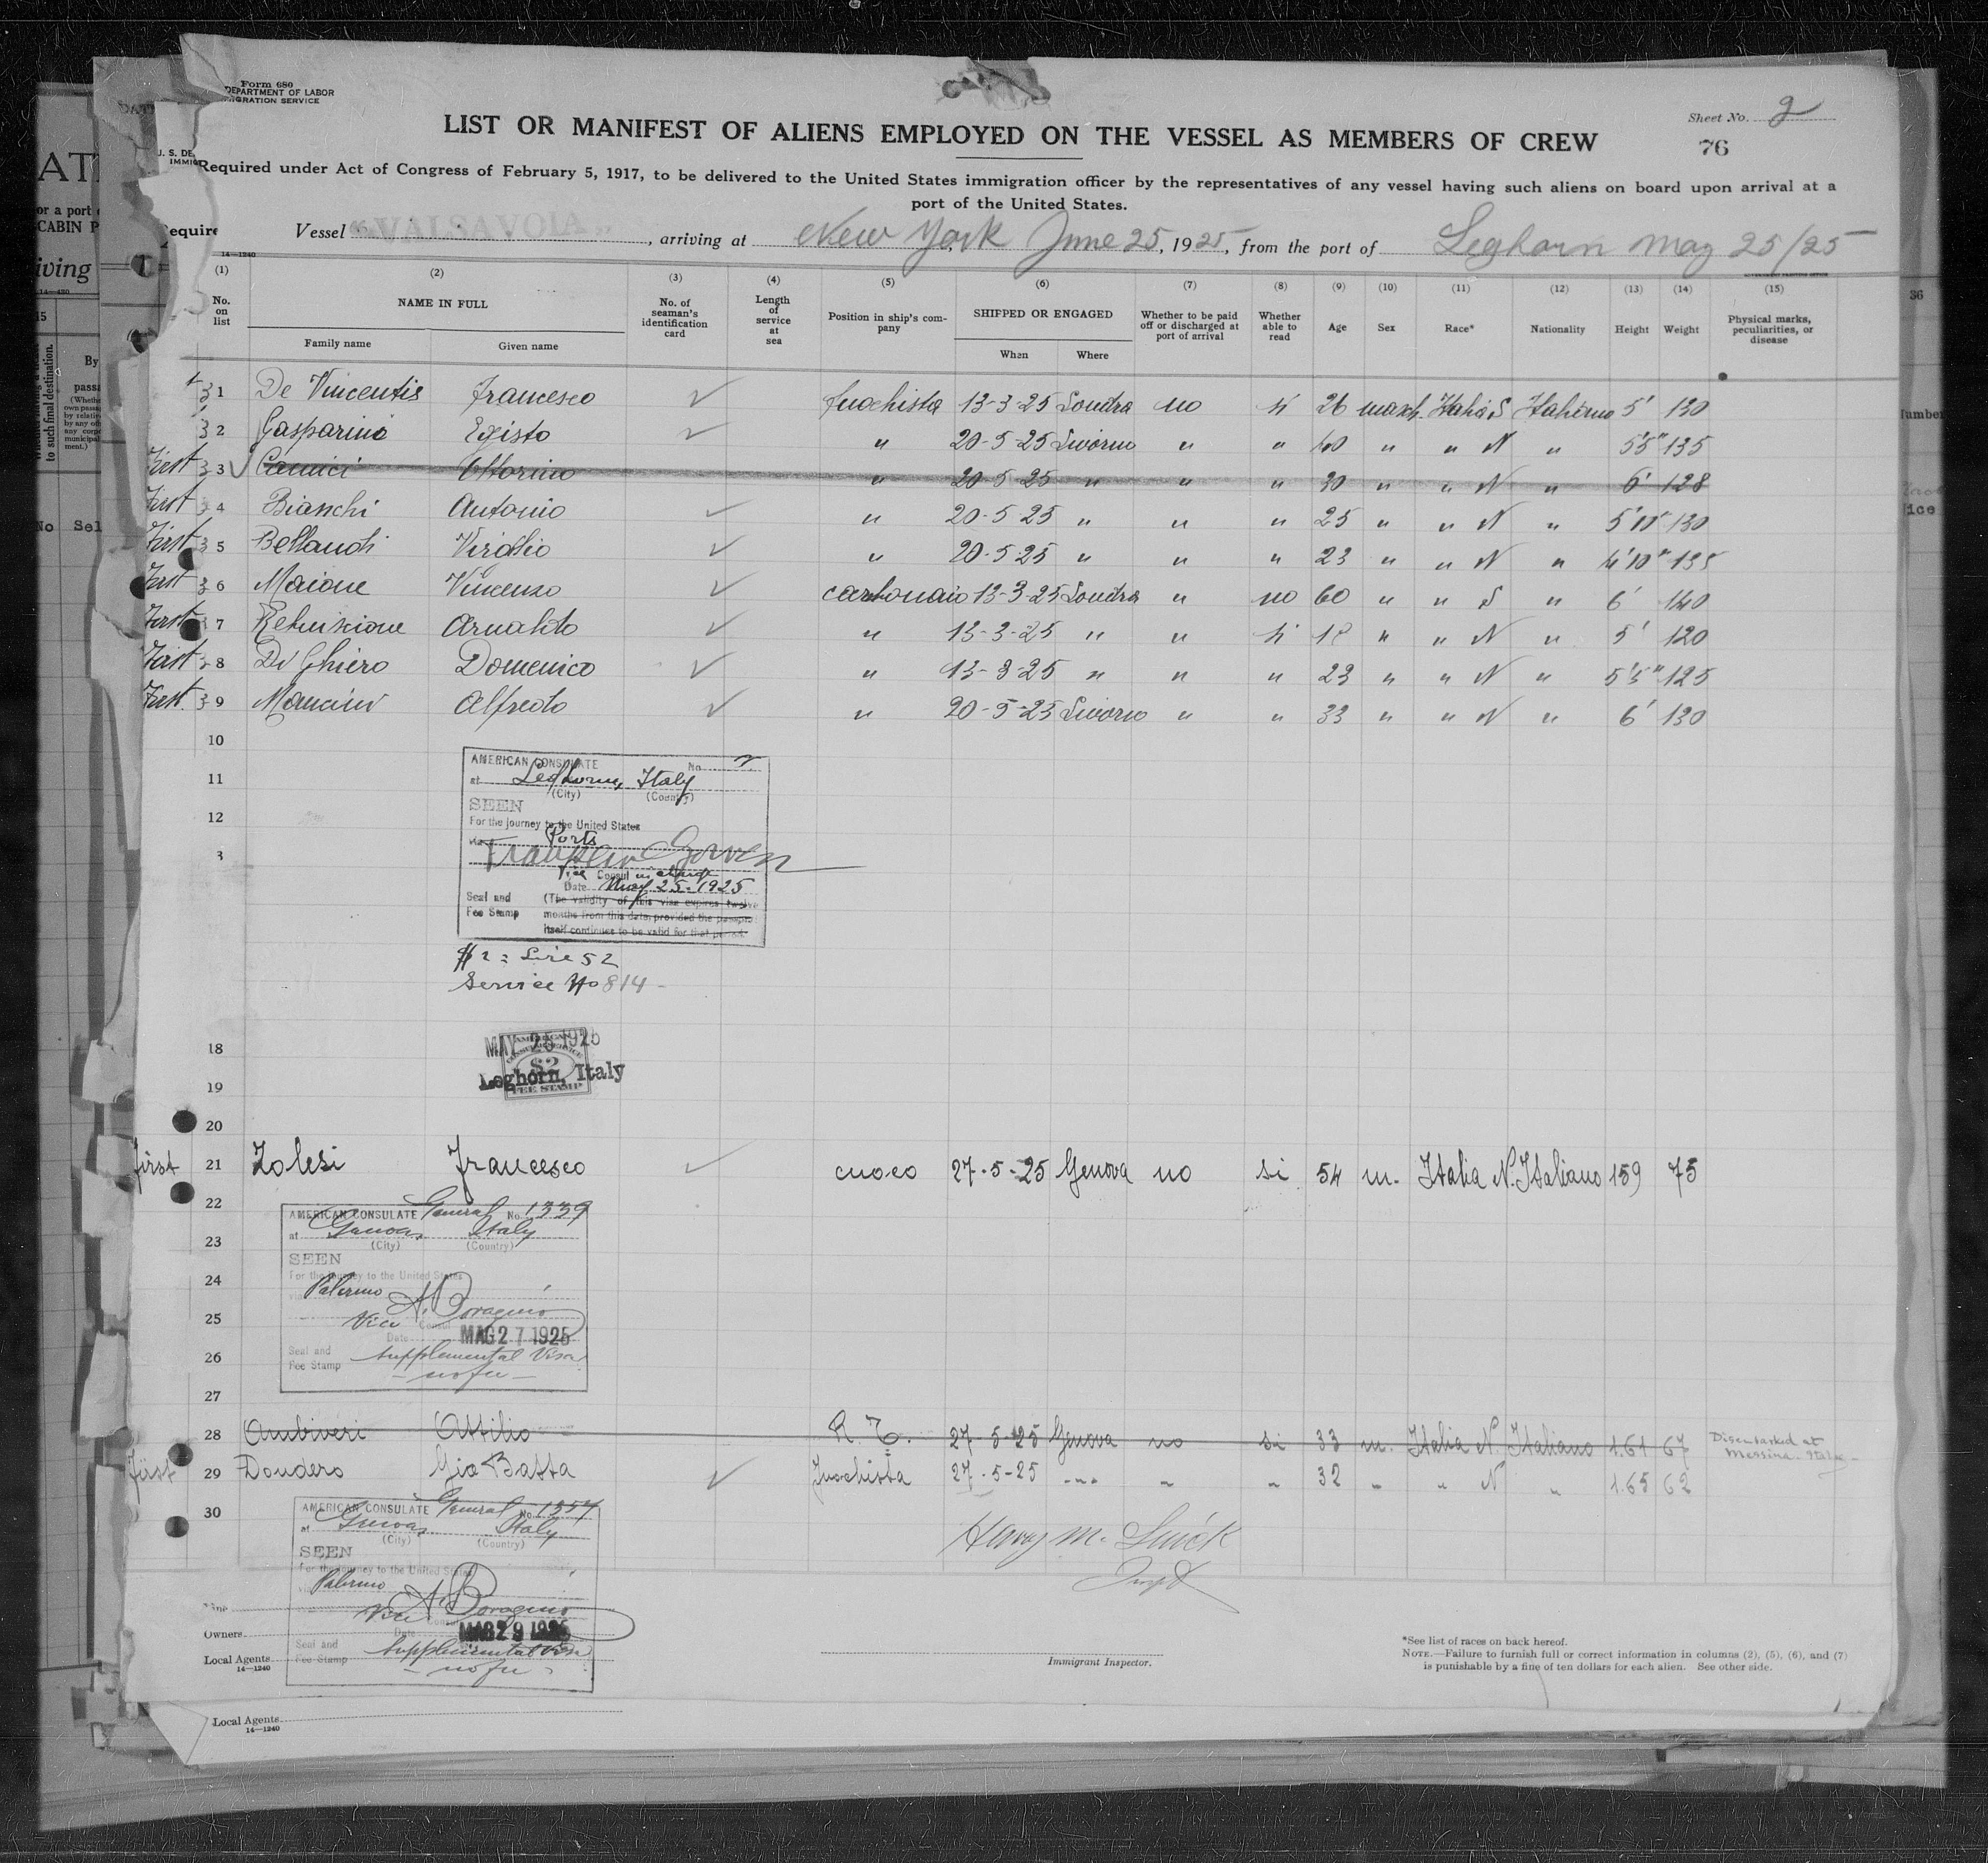 Form 680
DEPARTMENT OF LABOR
IMMIGRATION SERVICE
LIST OR MANIFEST OF ALIENS EMPLOYED ON THE VESSEL AS MEMBERS OF CREW
Sheet No. 2
76
Required under Act of Congress of February 5, 1917, to be delivered to the United States immigration officer by the representatives of any vessel having such aliens on board upon arrival at a
port of the United States.
Vessel "VALSAVOIA", arriving at New York June 25, 1925, from the port of Leghorn May 25/25
14—1240
(1) (2) (3) (4) (5) (6) (7) (8) (9) (10) (11) (12) (13) (14) (15)
No. on list NAME IN FULL Family name Given name No. of seaman's identification card Length of service at sea Position in ship's company SHIPPED OR ENGAGED When Where Whether to be paid off or discharged at port of arrival Whether able to read Age Sex Race* Nationality Height Weight Physical marks, peculiarities, or disease
31 De Vincentis Francesco ✓ fuochista 13-3-25 Londra no si 26 masch. Italia S Italiano 5' 130
32 Gasparini Egisto ✓ " 20-5-25 Livorno " " 40 " " N " 5'5" 135
First 33 ✓ Camici Ottorino " 20-5-25 " " " 30 " " N " 6' 128
First 34 Bianchi Antonio ✓ " 20-5-25 " " " 25 " " N " 5'10" 130
First 35 Bellandi Virgilio ✓ " 20-5-25 " " " 23 " " N " 4'10" 135
First 36 Maione Vincenzo ✓ carbonaio 13-3-25 Londra " no 60 " " S " 6' 140
First 37 Arnaldo ✓ " 13-3-25 " " si 18 " " N " 5' 120
First 38 Di Ghiero Domenico ✓ " 13-3-25 " " " 23 " " N " 5'5" 125
First 39 Mancini Alfredo ✓ " 20-5-25 Livorno " " 33 " " N " 6' 130
10
11
12
3
AMERICAN CONSULATE No. 2
at Leghorn, Italy
(City) (Country)
SEEN
For the journey to the United States
via Ports
Franklin Gowen
Vice Consul in charge
Date May 25-1925
Seal and Fee Stamp
(The validity of this visa expires twelve
months from this date, provided the passport
itself continues to be valid for that period.
$2 = Lire 52
Service No 814 -
MAY 25 1925
AMERICAN CONSULAR SERVICE
$2
FEE STAMP
Leghorn, Italy
18
19
20
First 21 Zolesi Francesco ✓ cuoco 27-5-25 Genova no si 54 m. Italia N. Italiano 159 75
22
23
24
25
26
27
AMERICAN CONSULATE General No. 1339
at Genoa, Italy
(City) (Country)
SEEN
For the journey to the United States
Palermo
A. Boragino
Vice Consul
Date MAG 27 1925
Seal and Fee Stamp
Supplemental Visa
- no fee -
28 Ambiveri Attilio R. T. 27-5-25 Genova no si 33 m. Italia N. Italiano 1.61 67 Disembarked at Messina - Italy -
First 29 Dondero Gio Batta ✓ Fuochista 27-5-25 " " " 32 " " N " 1.65 62
30
AMERICAN CONSULATE General No. 1357
at Genoa, Italy
(City) (Country)
SEEN
For the journey to the United States
via Palermo
A. Boragino
Vice Consul
Date MAG 29 1925
Seal and Fee Stamp
Supplemental Visa
- no fee -
Line
Owners
Local Agents
14—1240
Immigrant Inspector.
*See list of races on back hereof.
NOTE.—Failure to furnish full or correct information in columns (2), (5), (6), and (7)
is punishable by a fine of ten dollars for each alien. See other side.
Local Agents
14—1240